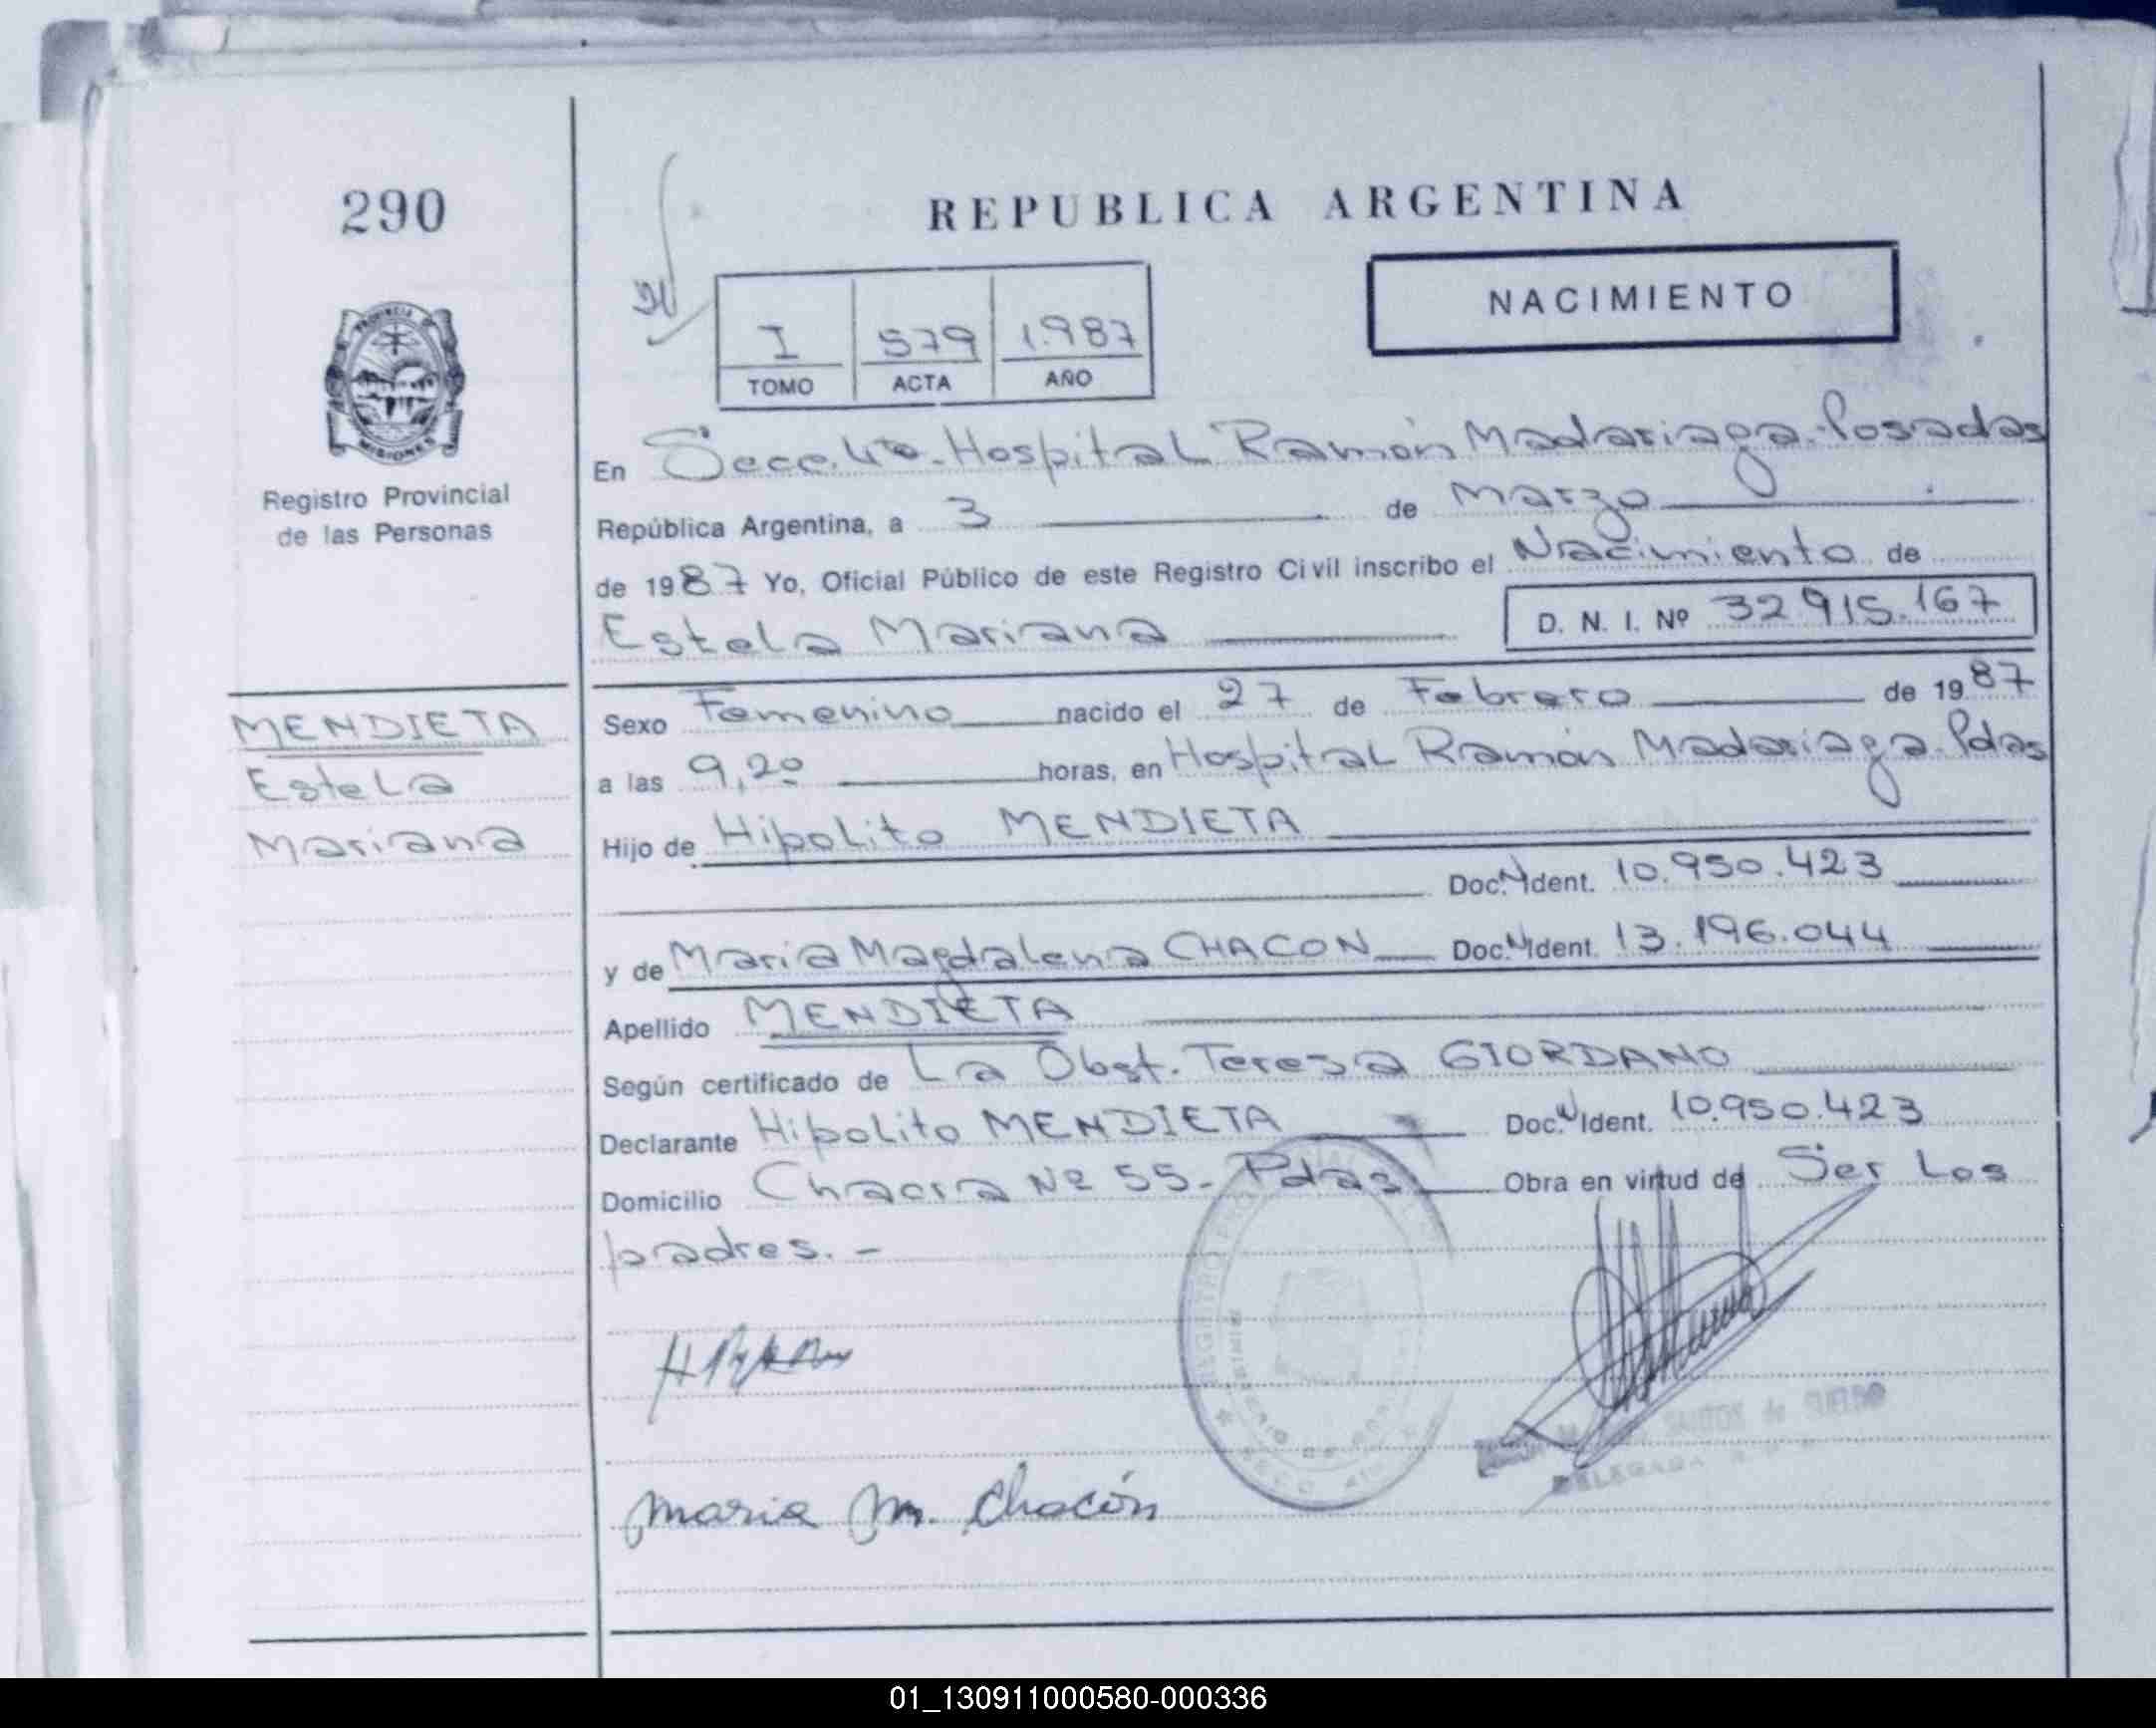 290
REPUBLICA ARGENTINA
NACIMIENTO
I 579 1.987
TOMO ACTA AÑO
PROVINCIA DE
MISIONES
Registro Provincial
de las Personas
En Secc. 4ta. Hospital Ramón Madariaga. Posadas
República Argentina, a 3 de Marzo
de 1987 Yo, Oficial Público de este Registro Civil inscribo el Nacimiento de
Estela Mariana D. N. I. Nº 32.915.167
MENDIETA
Estela
Mariana
Sexo Femenino nacido el 27 de Febrero de 1987
a las 9,20 horas, en Hospital Ramón Madariaga. Pdas
Hijo de Hipolito MENDIETA
Doc. N Ident. 10.950.423
y de Maria Magdalena CHACON Doc. N Ident. 13.196.044
Apellido MENDIETA
Según certificado de La Obst. Teresa GIORDANO
Declarante Hipolito MENDIETA Doc. N Ident. 10.950.423
Domicilio Chacra Nº 55. Pdas Obra en virtud de Ser Los
padres. -
REGISTRO
SANTOS de
DELEGADA
maria m. chacón
01_130911000580-000336